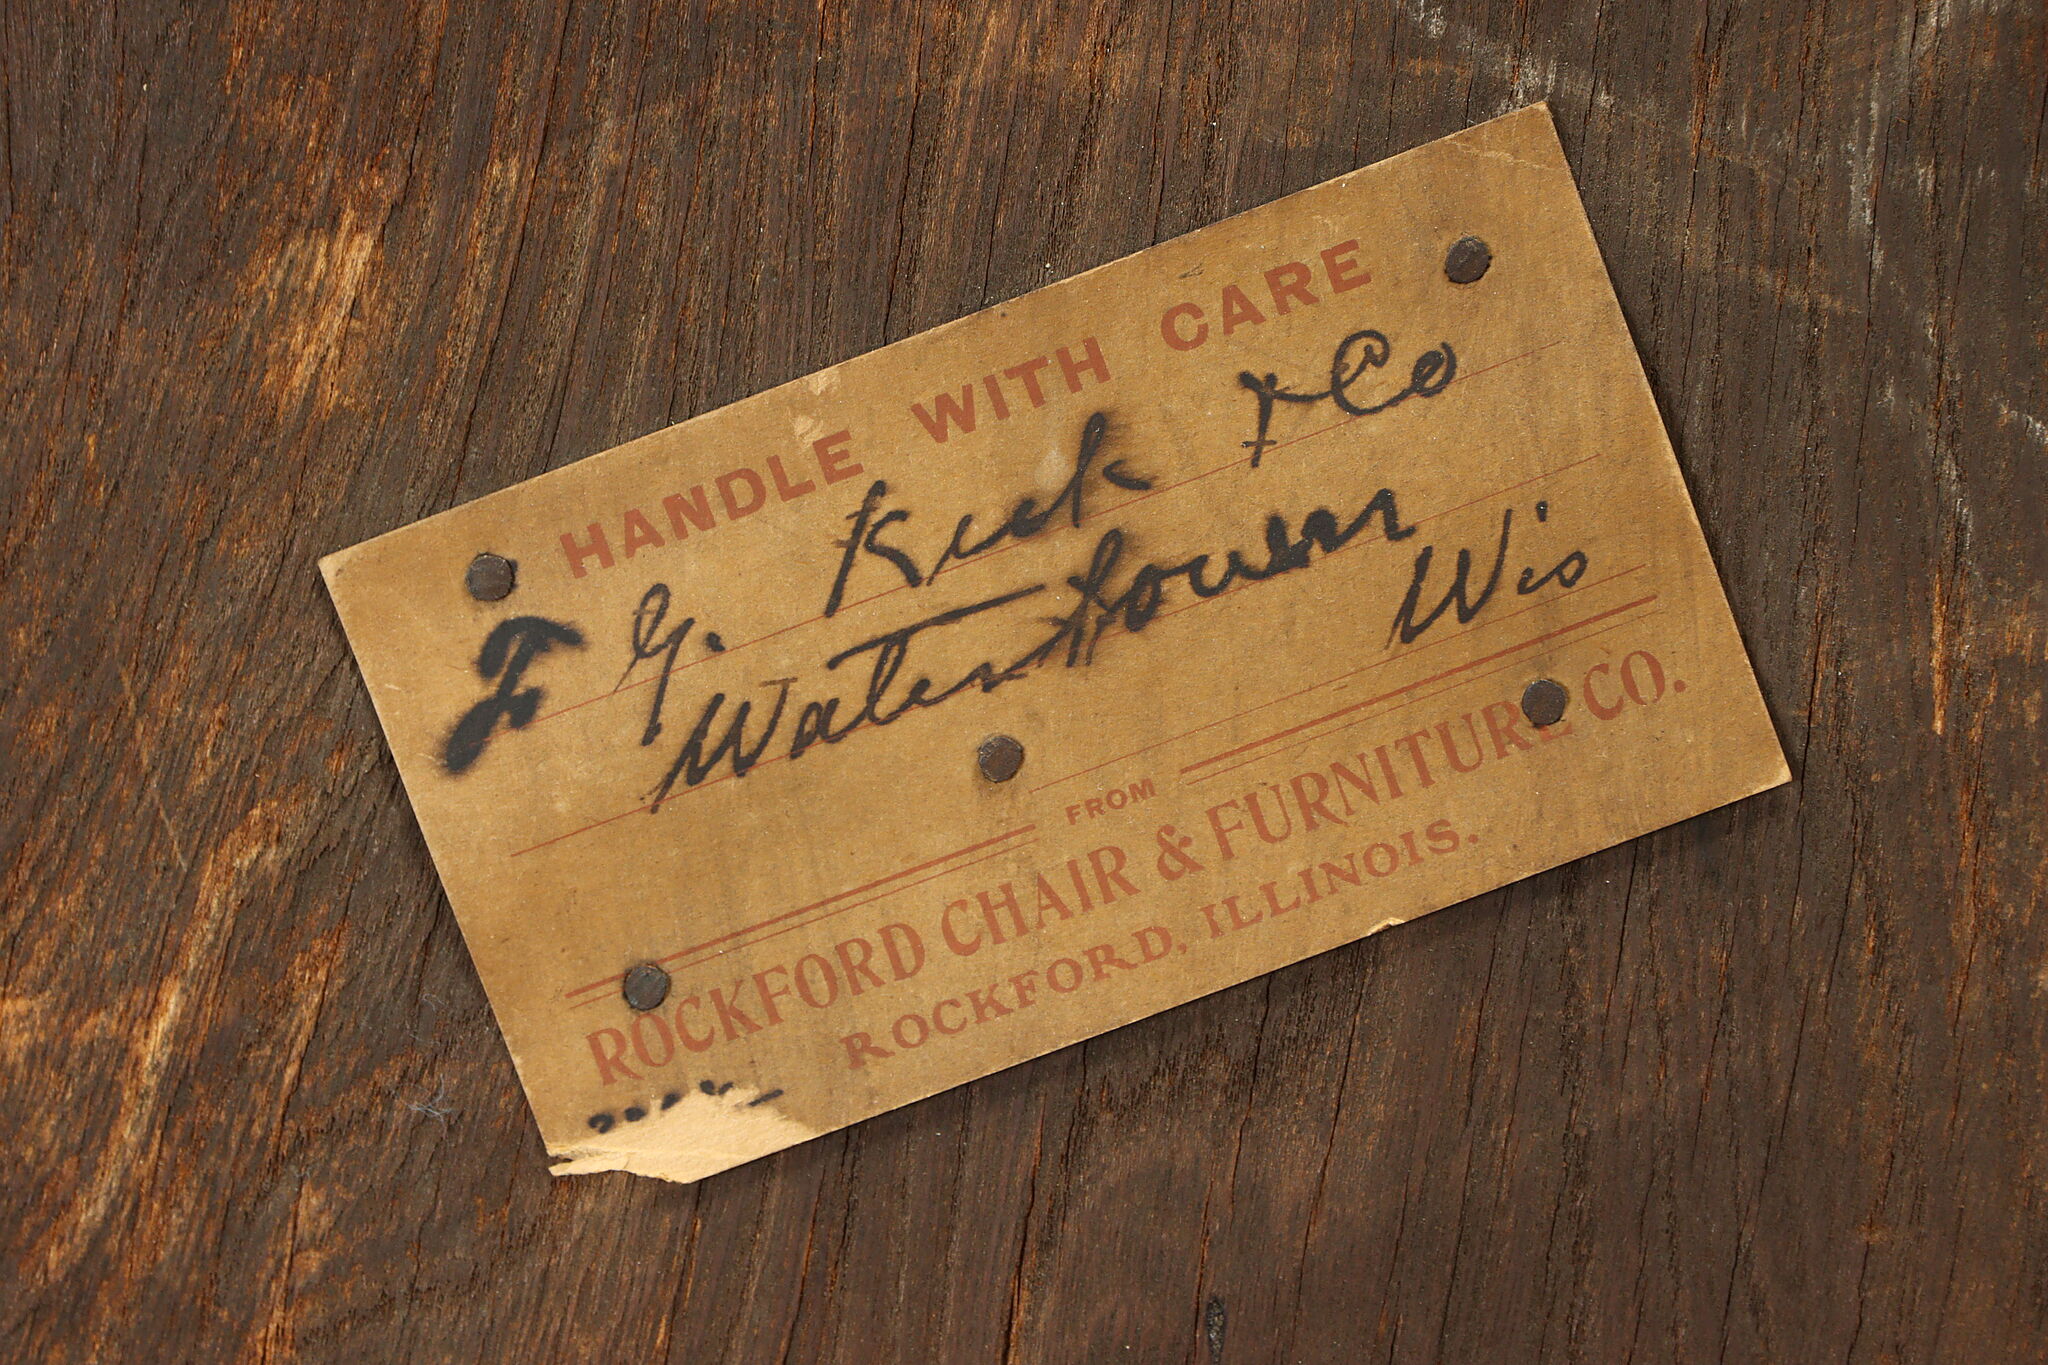 HANDLE WITH CARE
J. G. Keck & Co
Watertown
Wis
FROM
ROCKFORD CHAIR & FURNITURE CO.
ROCKFORD, ILLINOIS.